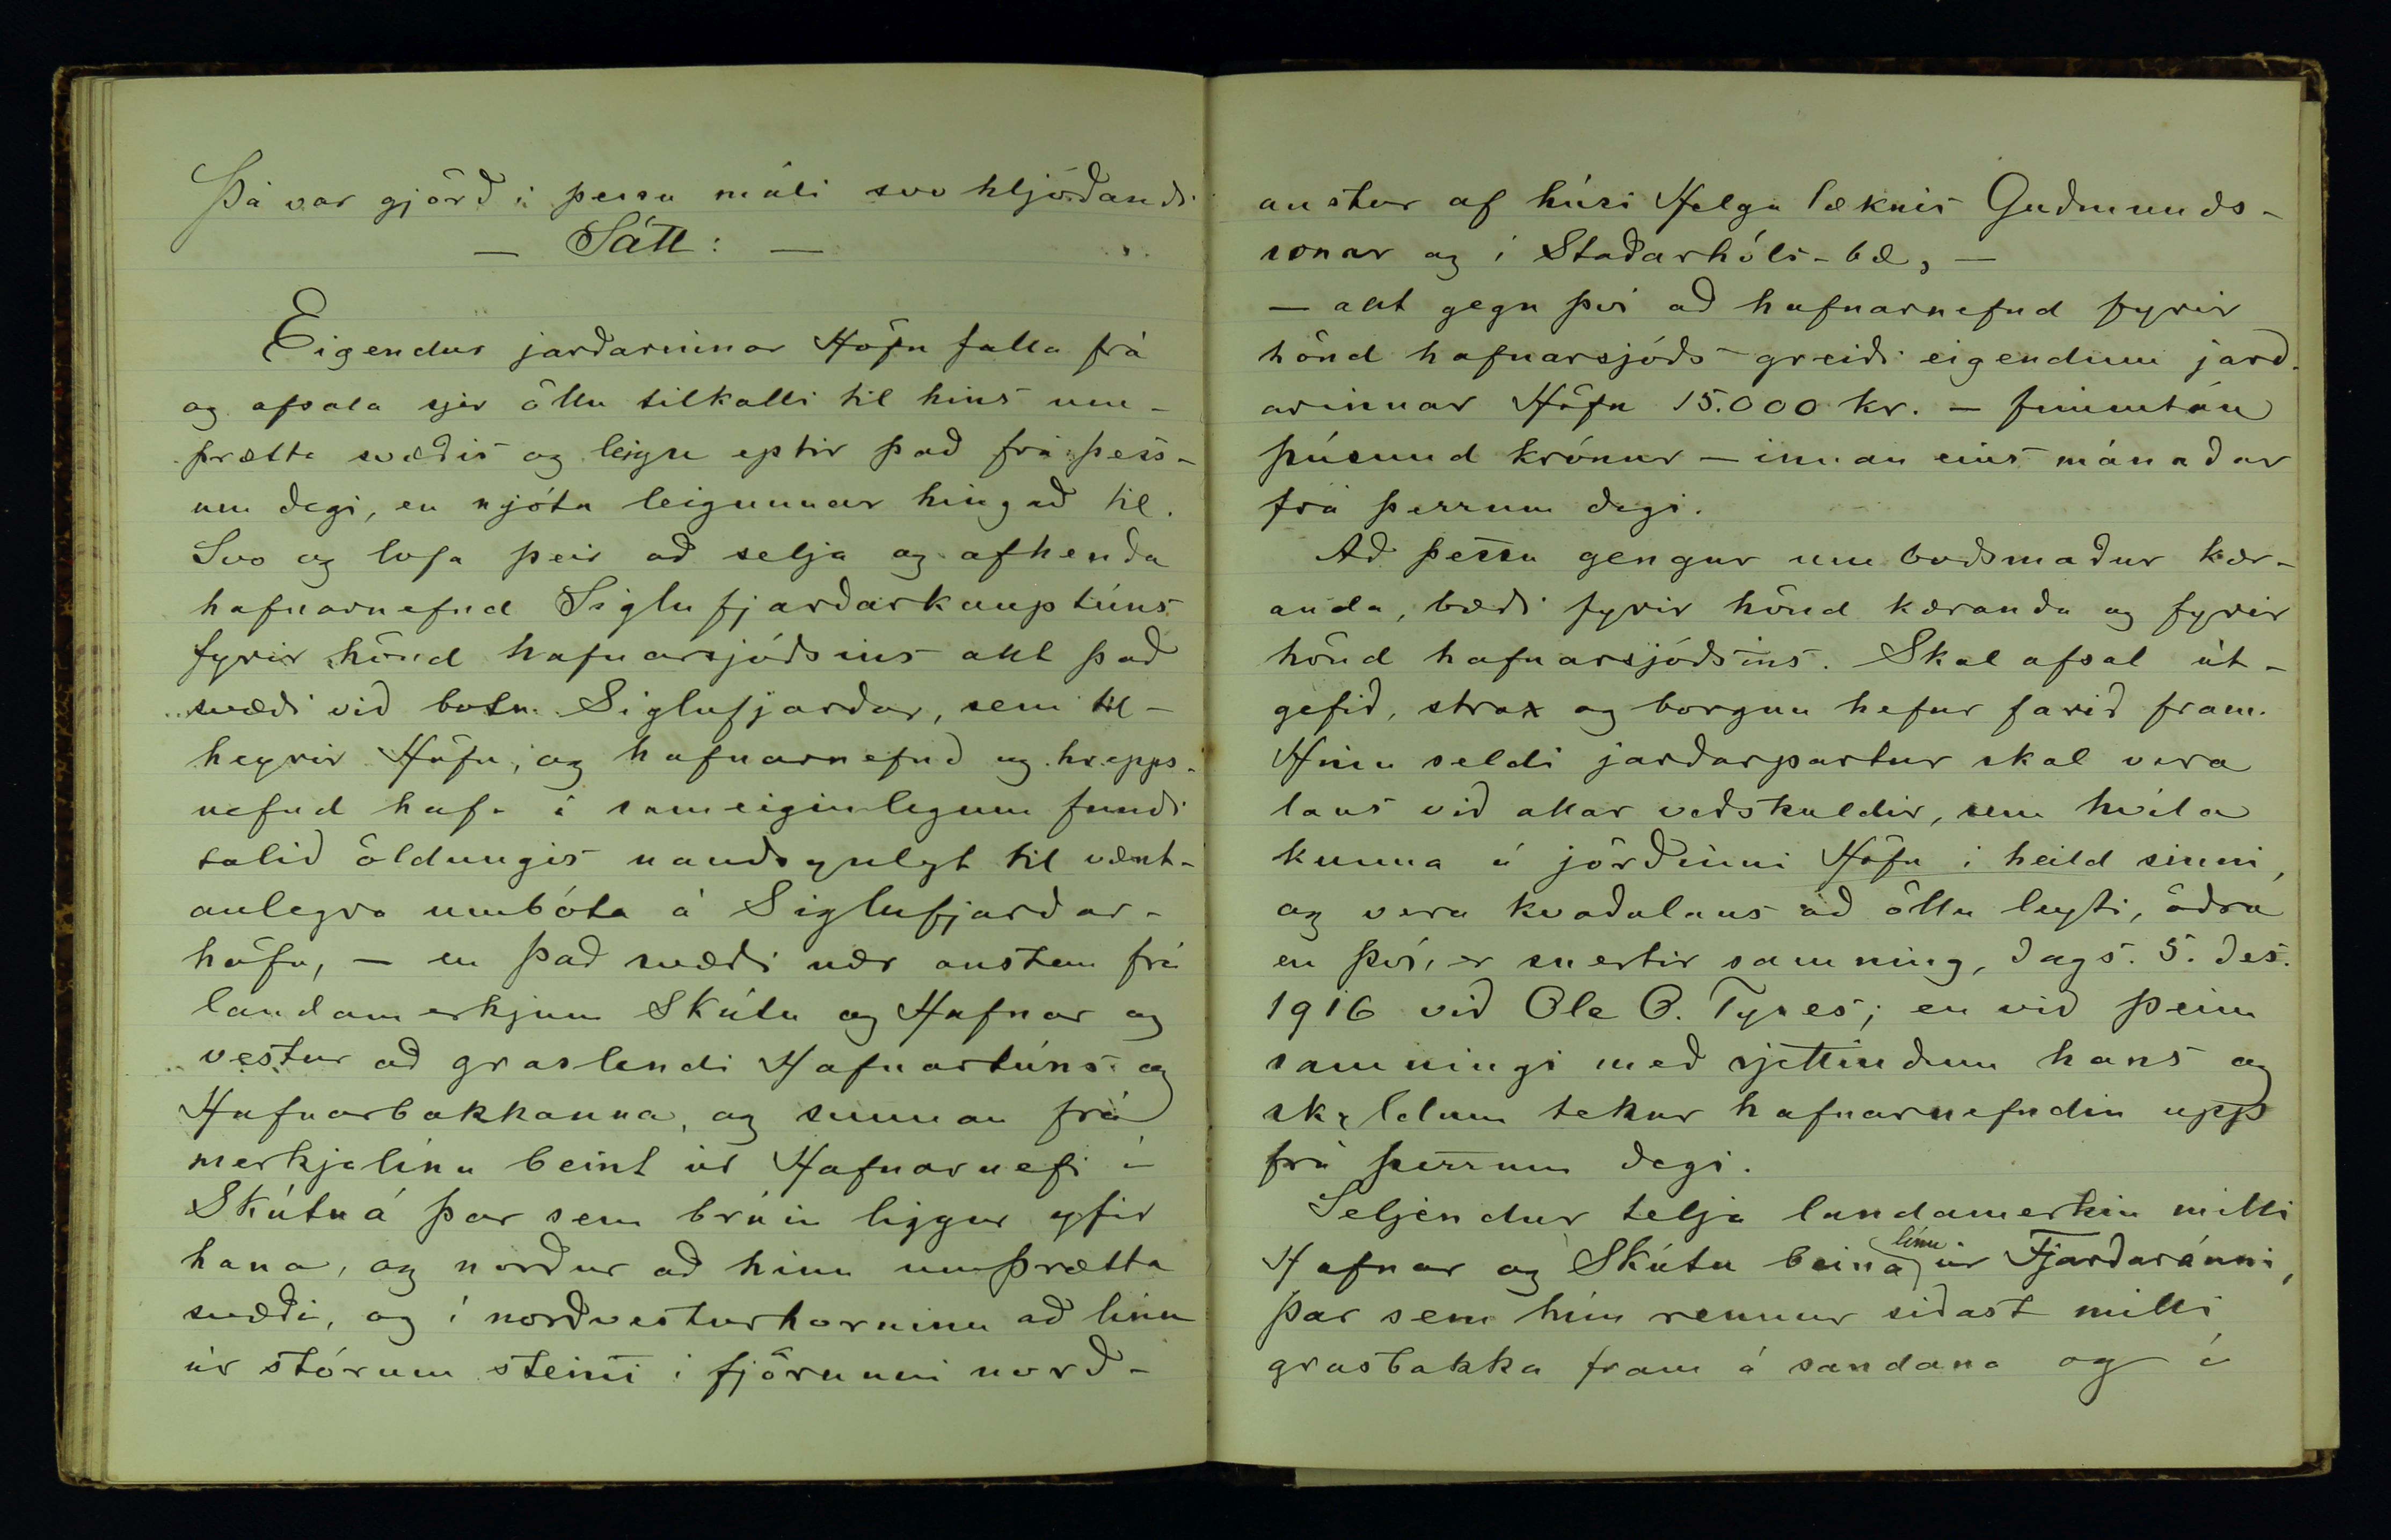 Þá var gjörð í þessu máli svo hljóðandi
— Sátt: —
Eigendur jarðarinnar Höfn falla frá
og afsala sjer öllu tilkalli til hins um-
þrætta svæðis og leigu eptir það frá þess-
um degi, en njóta leigunnar hingað til.
Svo og lofa þeir að selja og afhenda
hafnarnefnd Siglufjarðarkauptúns
fyrir hönd hafnarsjóðsins allt það
svæði við botn Siglufjarðar, sem til-
heyrir Höfn, og hafnarnefnd og hrepps-
nefnd hafa á sameiginlegum fundi
talið öldungis nauðsynlegt til vænt-
anlegra umbóta á Siglufjarðar-
höfn, — en það svæði nær austan frá
landamerkjum Skútu og Hafnar og
vestur að graslendi Hafnartúns og
Hafnarbakkanna, og sunnan frá
merkjalínu beint úr Hafnarnefi í
Skútuá þar sem brúin liggur yfir
hana, og norður að hinu umþrætta
svæði, og í norðvesturhorninu að línu
úr stórum steini í fjörunni norð-
austur af húsi Helga læknis Guðmunds-
sonar og í Staðarhóls-bæ, —
— allt gegn því að hafnarnefnd fyrir
hönd hafnarsjóðs greiði eigendum jarð-
arinnar Höfn 15.000 kr. — fimmtán
þúsund krónur — innan eins mánaðar
frá þessum degi.
Að þessu gengur umboðsmaður kær-
anda, bæði fyrir hönd kæranda og fyrir
hönd hafnarsjóðsins. Skal afsal út-
gefið, strax og borgun hefur farið fram.
Hinn seldi jarðarpartur skal vera
laus við allar veðskuldir, sem hvíla
kunna á jörðinni Höfn í heild sinni,
og vera kvaðalaus að öllu leyti, öðru
en því, er snertir samning, dags. 5. des.
1916 við Ole O. Tynes; en við þeim
samningi með rjettindum hans og
skyldum tekur hafnarnefndin upp
frá þessum degi.
Seljendur telja landamerkin milli
Hafnar og Skútu beina línu úr Fjarðaránni,
þar sem hún rennur síðast milli
grasbakka fram á sandana og í